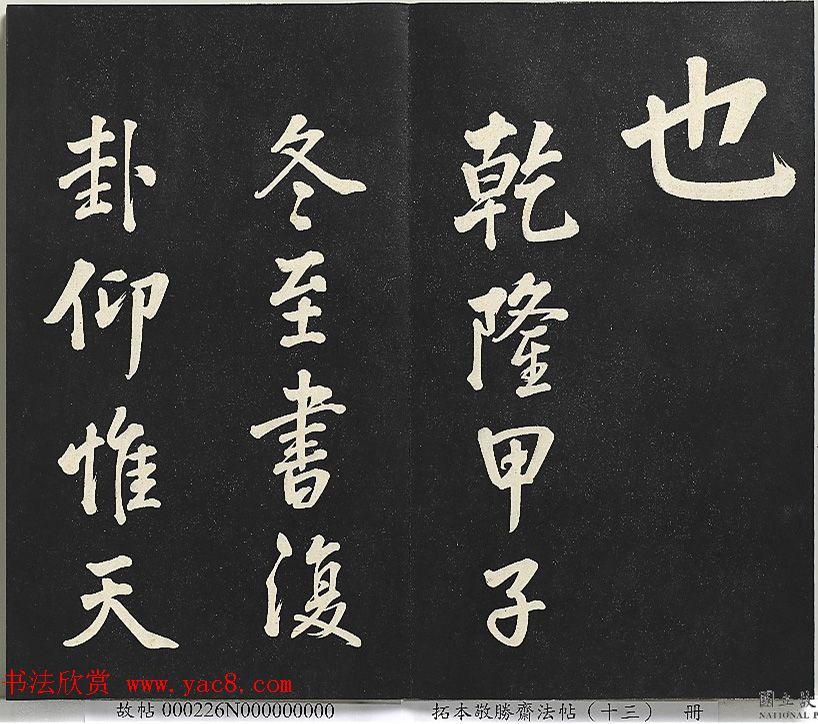 也
乾隆甲子
冬至書復
卦仰惟天
书法欣赏 www.yac8.com
故帖 000226N000000000
拓本敬勝齋法帖（十三） 冊
國立故
NATIONAL P